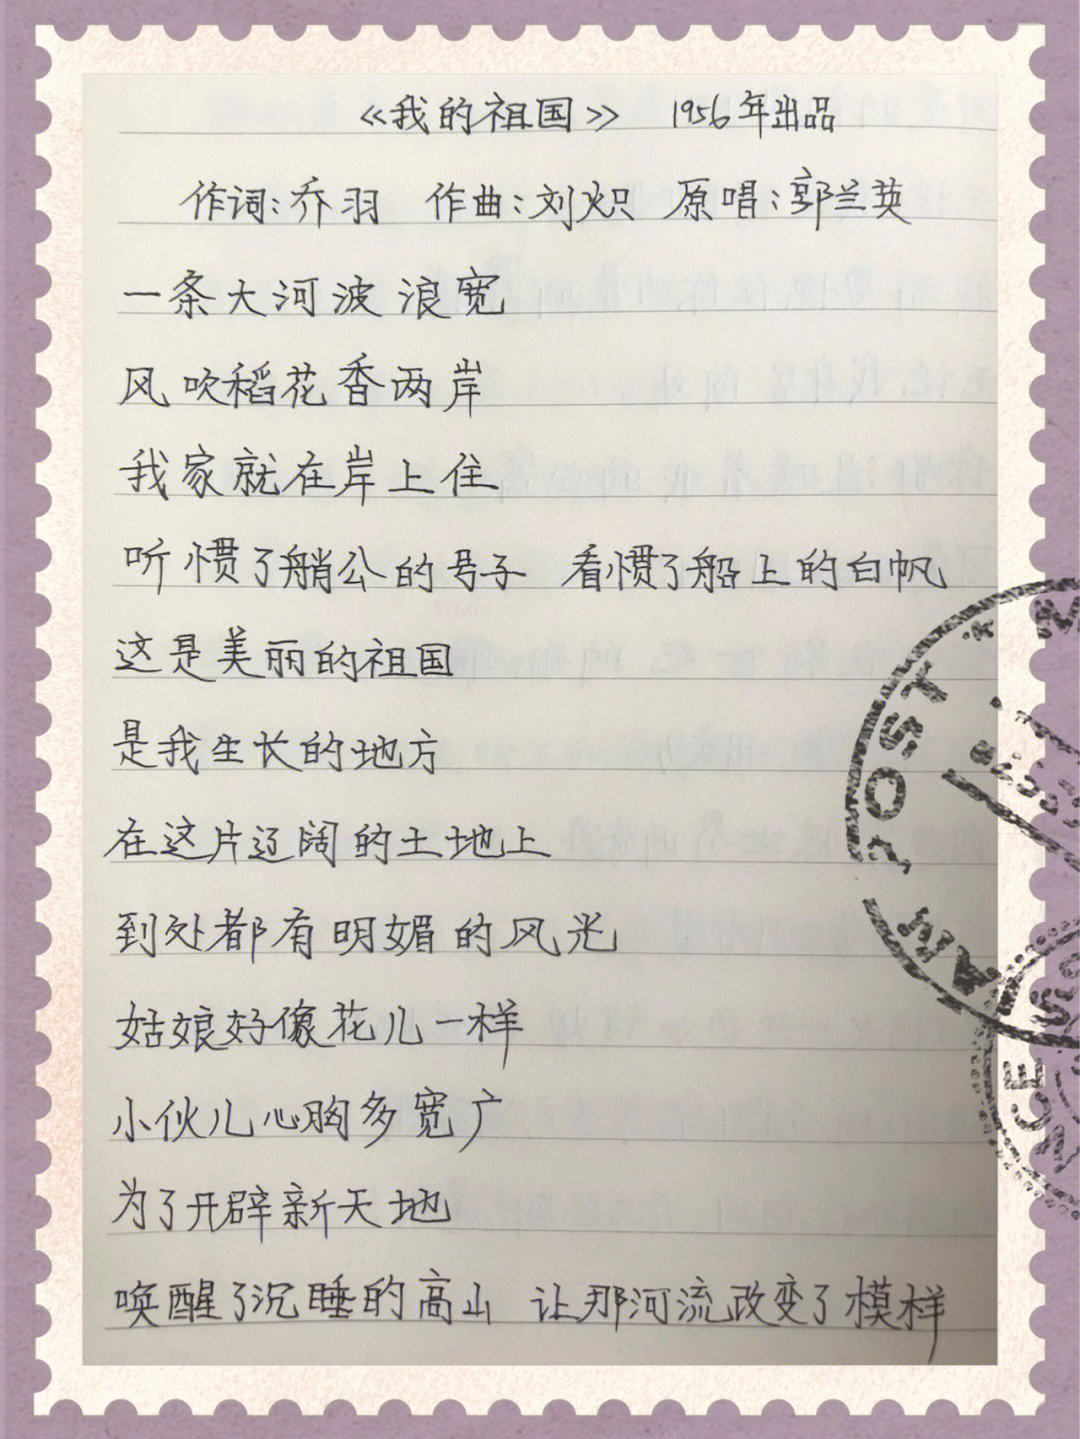 《我的祖国》 1956年出品
作词:乔羽 作曲:刘炽 原唱:郭兰英
一条大河波浪宽
风吹稻花香两岸
我家就在岸上住
听惯了艄公的号子 看惯了船上的白帆
这是美丽的祖国
是我生长的地方
在这片辽阔的土地上
到处都有明媚的风光
姑娘好像花儿一样
小伙儿心胸多宽广
为了开辟新天地
唤醒了沉睡的高山 让那河流改变了模样
POST